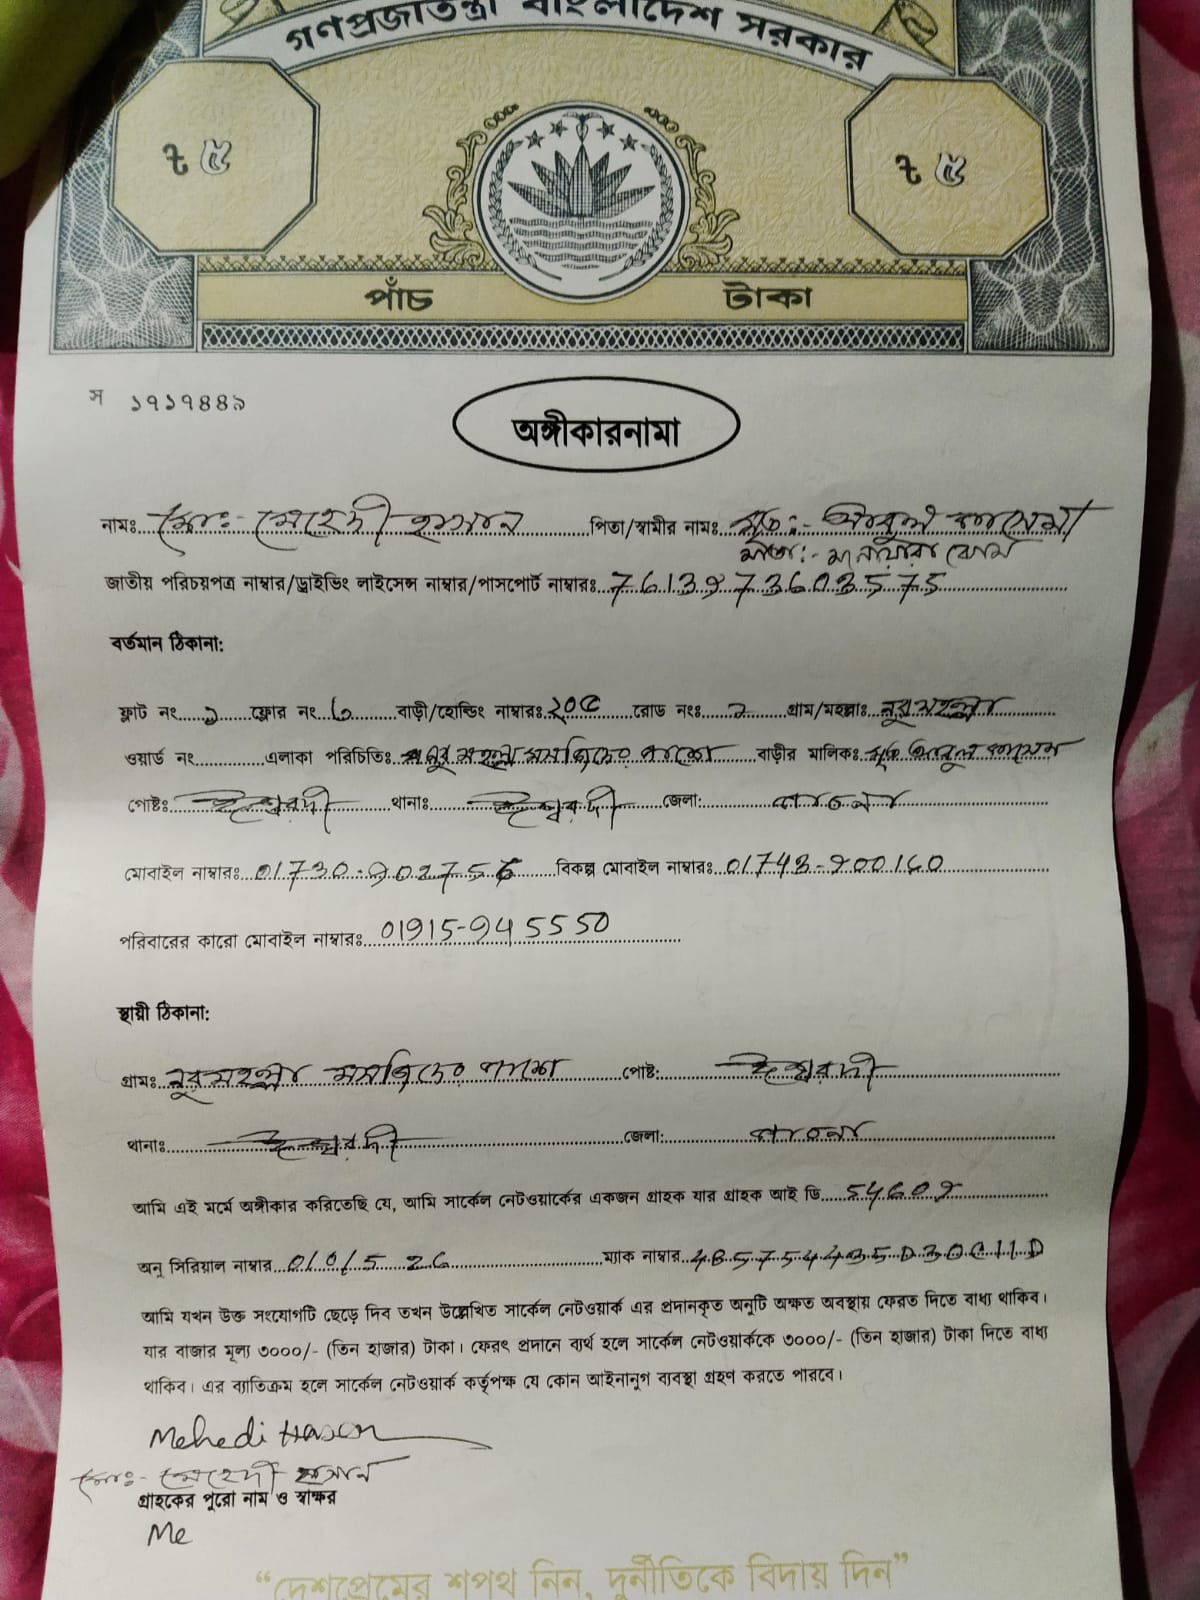 গণপ্রজাতন্ত্রী বাংলাদেশ সরকার
৳ ৫ ৳ ৫
পাঁচ টাকা
স ১৭১৭৪৪৯
অঙ্গীকারনামা
নামঃ মোঃ- মেহেদী হাসান পিতা/স্বামীর নামঃ মৃত:- আবুল কাসেম
মাতা:- মনোয়ারা বেগম
জাতীয় পরিচয়পত্র নাম্বার/ড্রাইভিং লাইসেন্স নাম্বার/পাসপোর্ট নাম্বারঃ 7613973603575
বর্তমান ঠিকানা:
ফ্লাট নং ১ ফ্লোর নং ৩ বাড়ী/হোল্ডিং নাম্বারঃ ২০৫ রোড নংঃ ২ গ্রাম/মহল্লাঃ নূরমহল্লা
ওয়ার্ড নং এলাকা পরিচিতিঃ নূর মহল্লা মসজিদের পাশে বাড়ীর মালিকঃ মৃত আবুল কাসেম
পোষ্টঃ ঈশ্বরদী থানাঃ ঈশ্বরদী জেলা: পাবনা
মোবাইল নাম্বারঃ 01730-902756 বিকল্প মোবাইল নাম্বারঃ 01743-900160
পরিবারের কারো মোবাইল নাম্বারঃ 01915-945550
স্থায়ী ঠিকানা:
গ্রামঃ নূরমহল্লা মসজিদের পাশে পোষ্ট: ঈশ্বরদী
থানাঃ ঈশ্বরদী জেলা: পাবনা
আমি এই মর্মে অঙ্গীকার করিতেছি যে, আমি সার্কেল নেটওয়ার্কের একজন গ্রাহক যার গ্রাহক আই ডি 54609
অনু সিরিয়াল নাম্বার 010/5 26 ম্যাক নাম্বার 485754435D30C11D
আমি যখন উক্ত সংযোগটি ছেড়ে দিব তখন উল্লেখিত সার্কেল নেটওয়ার্ক এর প্রদানকৃত অনুটি অক্ষত অবস্থায় ফেরত দিতে বাধ্য থাকিব।
যার বাজার মূল্য ৩০০০/- (তিন হাজার) টাকা। ফেরৎ প্রদানে ব্যর্থ হলে সার্কেল নেটওয়ার্ককে ৩০০০/- (তিন হাজার) টাকা দিতে বাধ্য
থাকিব। এর ব্যাতিক্রম হলে সার্কেল নেটওয়ার্ক কর্তৃপক্ষ যে কোন আইনানুগ ব্যবস্থা গ্রহণ করতে পারবে।
Mehedi Hasan
মোঃ- মেহেদী হাসান
গ্রাহকের পুরো নাম ও স্বাক্ষর
Me
“দেশপ্রেমের শপথ নিন, দুর্নীতিকে বিদায় দিন”